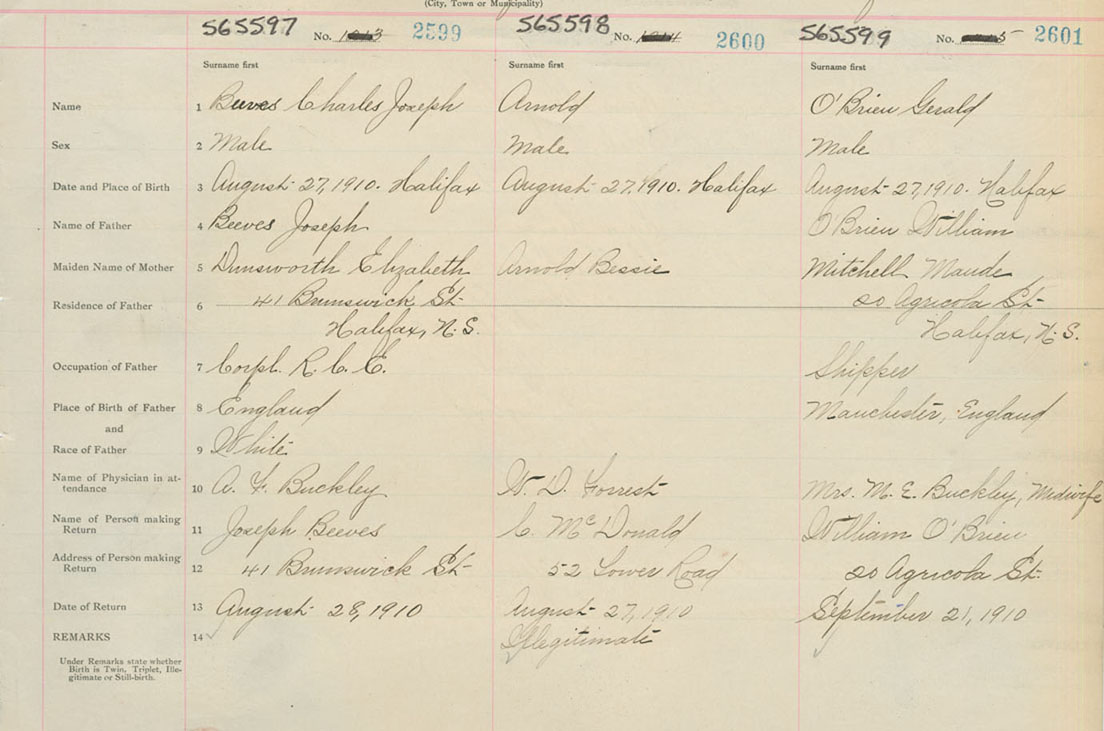 (City, Town or Municipality)
565597 No. 2599 565598 No. 2600 565599 No. 2601
Surname first Surname first Surname first
Name 1 Beeves Charles Joseph Arnold O'Brien Gerald
Sex 2 Male Male Male
Date and Place of Birth 3 August 27, 1910. Halifax August 27, 1910. Halifax August 27, 1910. Halifax
Name of Father 4 Beeves Joseph O'Brien William
Maiden Name of Mother 5 Dunsworth Elizabeth Arnold Bessie Mitchell Maude
Residence of Father 6 41 Brunswick St. 20 Agricola St.
Halifax, N.S. Halifax, N.S.
Occupation of Father 7 Corpl. R. C. E. Shipper
Place of Birth of Father 8 England Manchester, England
and
Race of Father 9 White
Name of Physician in at-
tendance 10 A. F. Buckley W. D. Forrest Mrs. M. E. Buckley, Midwife
Name of Person making
Return 11 Joseph Beeves C. McDonald William O'Brien
Address of Person making
Return 12 41 Brunswick St. 52 Lower Road 20 Agricola St.
Date of Return 13 August 28, 1910 August 27, 1910 September 21, 1910
REMARKS 14 Illegitimate
Under Remarks state whether
Birth is Twin, Triplet, Ille-
gitimate or Still-birth.